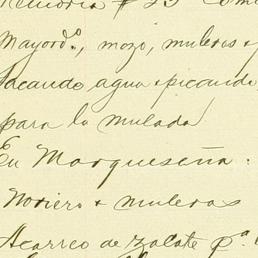 Memoria # 23
Mayordo., mozo, muleros y
Sacando agua y picando
para la mulada
En Marqueseña.
Noriero y muleros
Acarreo de zacate pa.